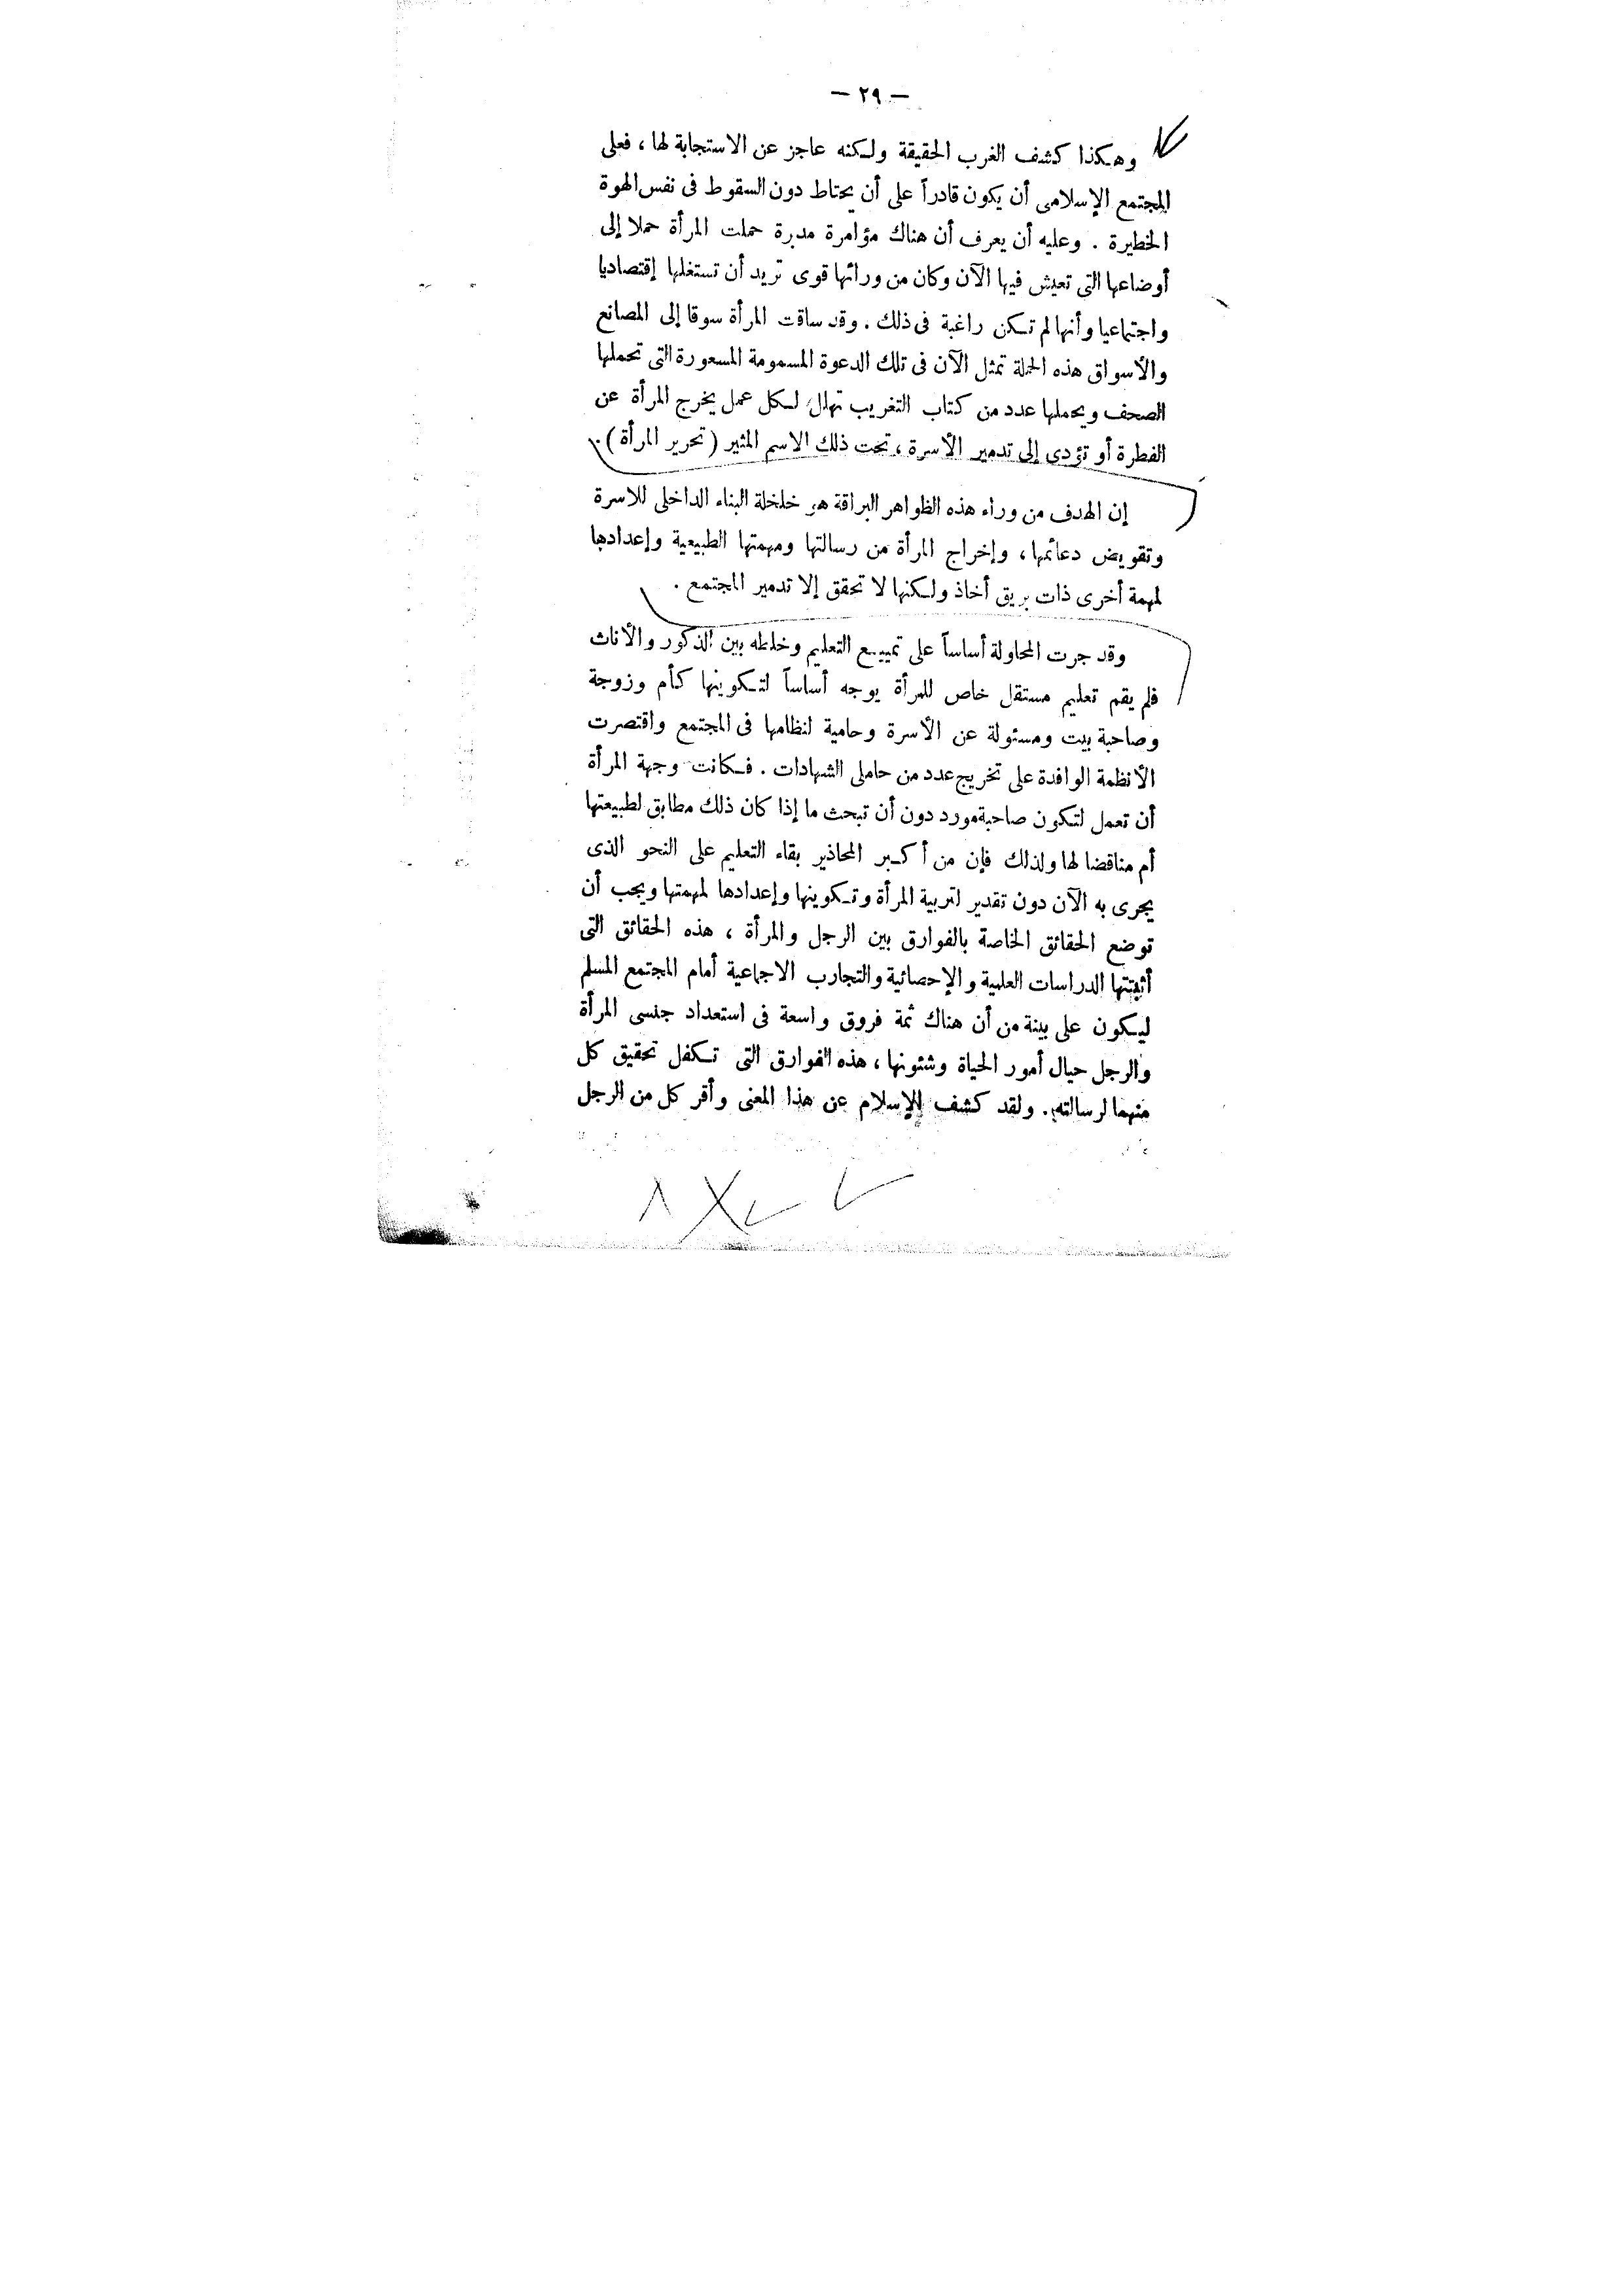 — ٢٩ —
وهكذا كشف الغرب الحقيقة ولكنه عاجز عن الاستجابة لها ، فعلى
المجتمع الإسلامى أن يكون قادراً على أن يحتاط دون السقوط فى نفس الهوة
الخطيرة . وعليه أن يعرف أن هناك مؤامرة مدبرة حملت المرأة حملا إلى
أوضاعها التى تعيش فيها الآن وكان من ورائها قوى تريد أن تستغلها إقتصاديا
واجتماعيا وأنها لم تكن راغبة فى ذلك . وقد ساقت المرأة سوقا إلى المصانع
والأسواق هذه الحملة تمثل الآن فى تلك الدعوة المسمومة المسعورة التى تحملها
الصحف ويحملها عدد من كتاب التغريب تهلل لكل عمل يخرج المرأة عن
الفطرة أو تؤدى إلى تدمير الأسرة ، تحت ذلك الاسم المثير ( تحرير المرأة ) .
إن الهدف من وراء هذه الظواهر البراقة هو خلخلة البناء الداخلى للاسرة
وتقويض دعائمها ، وإخراج المرأة من رسالتها ومهمتها الطبيعية وإعدادها
لمهمة أخرى ذات بريق أخاذ ولكنها لا تحقق إلا تدمير المجتمع .
وقد جرت المحاولة أساساً على تمييع التعليم وخلطه بين الذكور والأناث
فلم يقم تعليم مستقل خاص للمرأة يوجه أساساً لتكوينها كأم وزوجة
وصاحبة بيت ومسئولة عن الأسرة وحامية لنظامها فى المجتمع واقتصرت
الأنظمة الوافدة على تخريج عدد من حاملى الشهادات . فكانت وجهة المرأة
أن تعمل لتكون صاحبة مورد دون أن تبحث ما إذا كان ذلك مطابق لطبيعتها
أم مناقضا لها ولذلك فإن من أكبر المحاذير بقاء التعليم على النحو الذى
يجرى به الآن دون تقدير لتربية المرأة وتكوينها وإعدادها لمهمتها ويجب أن
توضع الحقائق الخاصة بالفوارق بين الرجل والمرأة ، هذه الحقائق التى
أثبتتها الدراسات العلمية والإحصائية والتجارب الاجماعية أمام المجتمع المسلم
ليكون على بينة من أن هناك ثمة فروق واسعة فى استعداد جنسى المرأة
والرجل حيال أمور الحياة وشئونها ، هذه الفوارق التى تكفل تحقيق كل
منهما لرسالته . ولقد كشف الإسلام عن هذا المعنى وأقر كل من الرجل